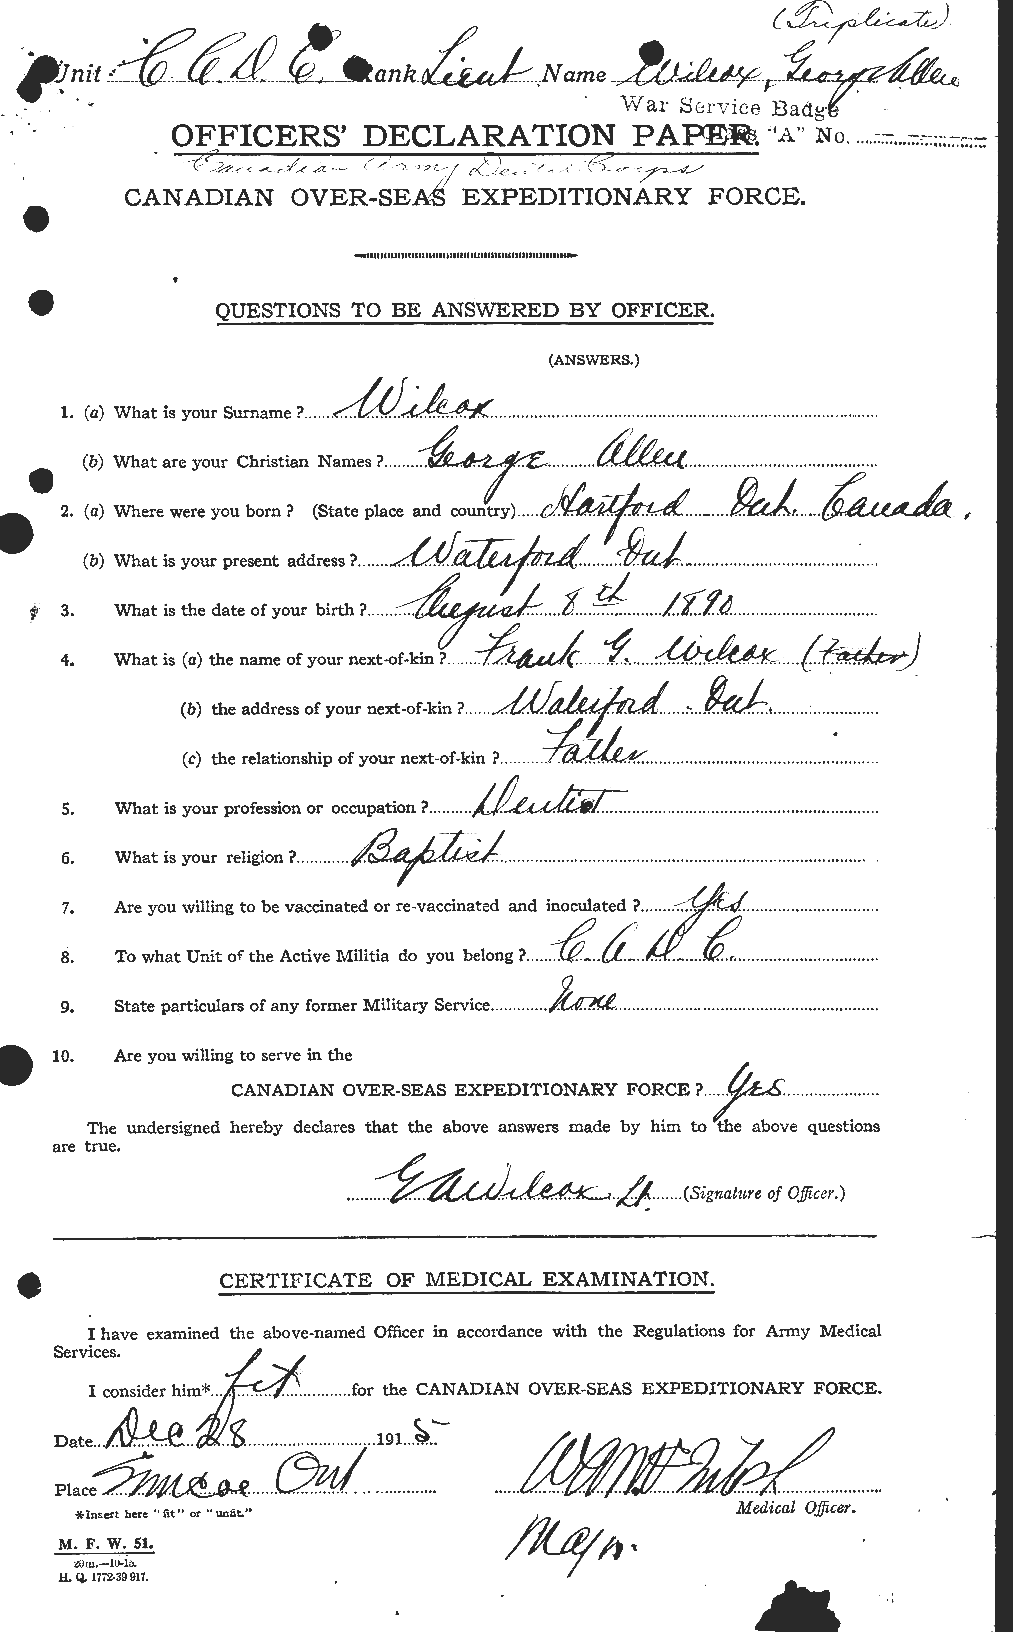 (Triplicate)
Unit: C A D C. Rank Lieut Name Wilcox, George Allen
War Service Badge
OFFICERS' DECLARATION PAPER. Class "A" No.
Canadian Army Dental Corps
CANADIAN OVER-SEAS EXPEDITIONARY FORCE.
QUESTIONS TO BE ANSWERED BY OFFICER.
(ANSWERS.)
1. (a) What is your Surname? Wilcox
(b) What are your Christian Names? George Allen
2. (a) Where were you born? (State place and country) Hartford Ont. Canada.
(b) What is your present address? Waterford Ont
3. What is the date of your birth? August 8th 1890
4. What is (a) the name of your next-of-kin? Frank G. Wilcox (Father)
(b) the address of your next-of-kin? Waterford. Ont.
(c) the relationship of your next-of-kin? Father
5. What is your profession or occupation? Dentist
6. What is your religion? Baptist
7. Are you willing to be vaccinated or re-vaccinated and inoculated? Yes
8. To what Unit of the Active Militia do you belong? C. A. D. C.
9. State particulars of any former Military Service. None
10. Are you willing to serve in the
CANADIAN OVER-SEAS EXPEDITIONARY FORCE? Yes
The undersigned hereby declares that the above answers made by him to the above questions
are true.
G A Wilcox. Lt. (Signature of Officer.)
CERTIFICATE OF MEDICAL EXAMINATION.
I have examined the above-named Officer in accordance with the Regulations for Army Medical
Services.
I consider him* fit for the CANADIAN OVER-SEAS EXPEDITIONARY FORCE.
Date Dec 28 1915
Place Simcoe Ont
Medical Officer.
*Insert here "fit" or "unfit."
Major.
M. F. W. 51.
20m.—10-15.
H. Q. 1772-39 917.